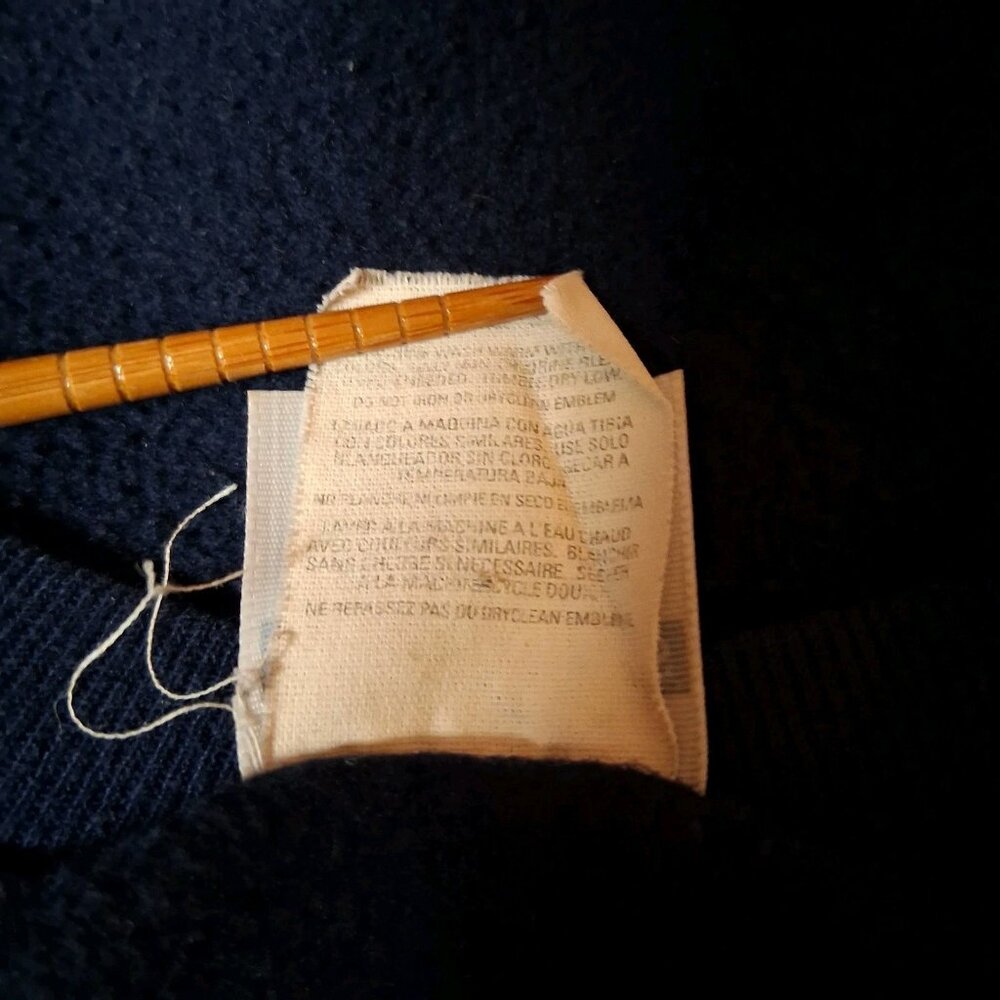 WASH WARM WITH
TUMBLE DRY LOW
DO NOT IRON OR DRYCLEAN EMBLEM
A MAQUINA CON AGUA TIBIA
CON COLORES SIMILARES. USE SOLO
BLANQUEADOR SIN CLORO SECAR A
TEMPERATURA BAJA
NO PLANCHE NI LIMPIE EN SECO EL EMBLEMA
LAVER A LA MACHINE A L'EAU CHAUD
AVEC COULEURS SIMILAIRES. BLANCHIR
SANS CHLORE SI NECESSAIRE. SECHER
A LA MACHINE CYCLE DOUX.
NE REPASSEZ PAS OU DRYCLEAN EMBLEME